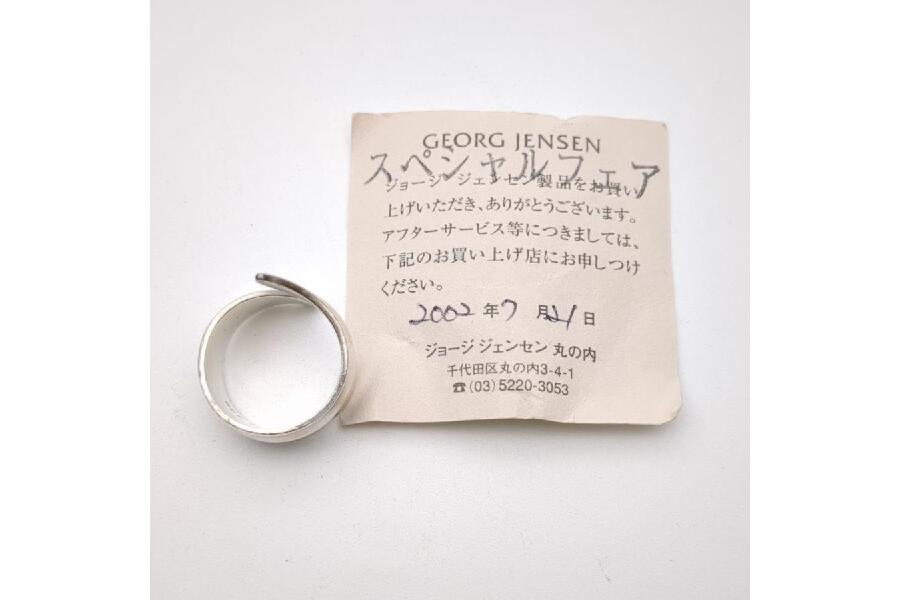 GEORG JENSEN
スペシャルフェア
ジョージ ジェンセン製品をお買い
上げいただき、ありがとうございます。
アフターサービス等につきましては、
下記のお買い上げ店にお申しつけ
ください。
2002年7月21日
ジョージ ジェンセン 丸の内
千代田区丸の内3-4-1
☎(03)5220-3053